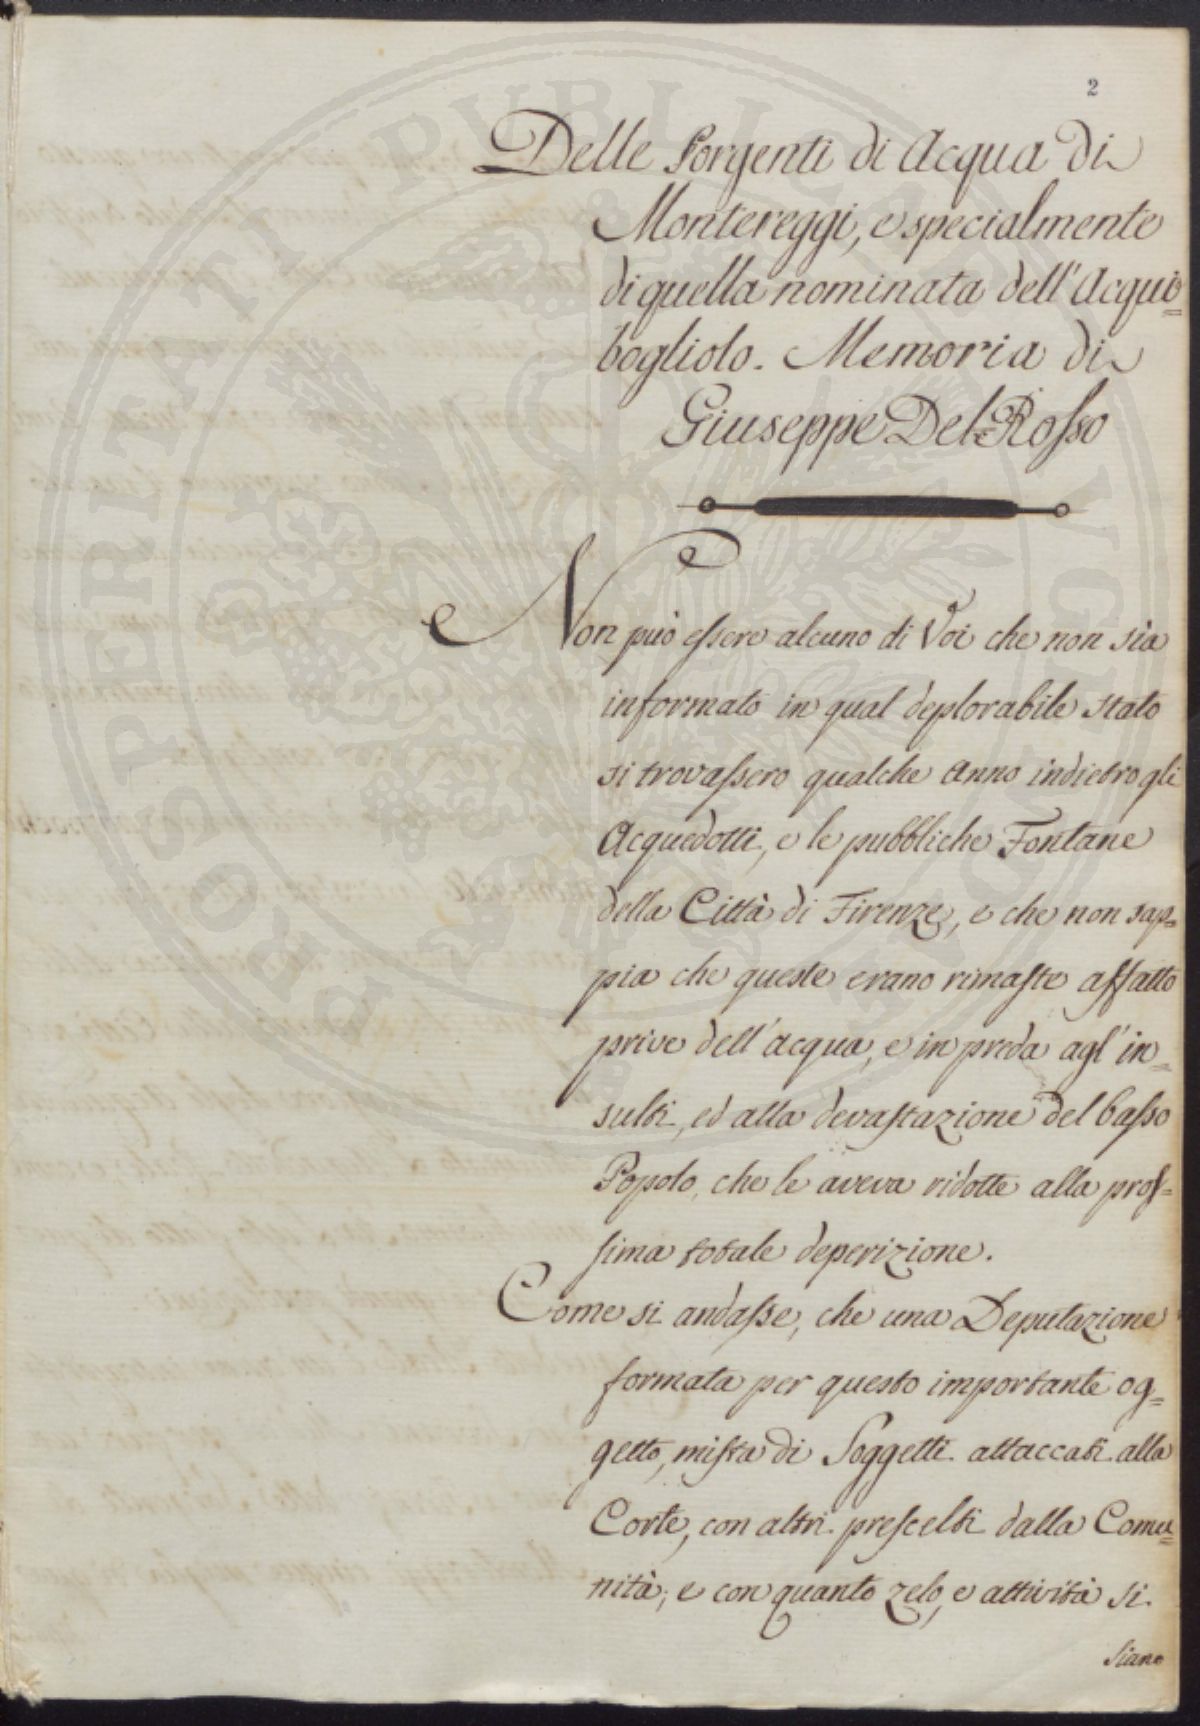 2
Delle Sorgenti di Acqua di
Montereggi, e specialmente
di quella nominata dell'Acqui=
bogliolo. Memoria di
Giuseppe Del=Rosso
Non può essere alcuno di Voi che non sia
informato in qual deplorabile stato
si trovassero qualche Anno indietro gli
Acquedotti, e le pubbliche Fontane
della Città di Firenze, e che non sap=
pia che queste erano rimaste affatto
prive dell'acqua, e in preda agl'in=
sulti, ed alla devastazione del basso
Popolo, che le aveva ridotte alla pros=
sima totale deperizione.
Come si andasse, che una Deputazione
formata per questo importante og=
getto, mista di Soggetti attaccati alla
Corte, con altri prescelti dalla Comu=
nità; e con quanto zelo, e attività si
siano
PROSPERITATI PUBLICAE AUGENDAE